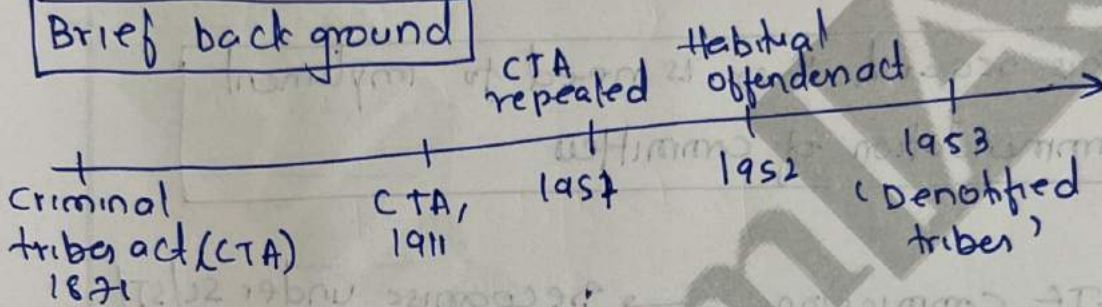 Brief back ground
CTA repealed
Habitual offender act
Criminal tribes act (CTA) 1871
CTA, 1911
1951
1952
1953
'Denotified tribes'